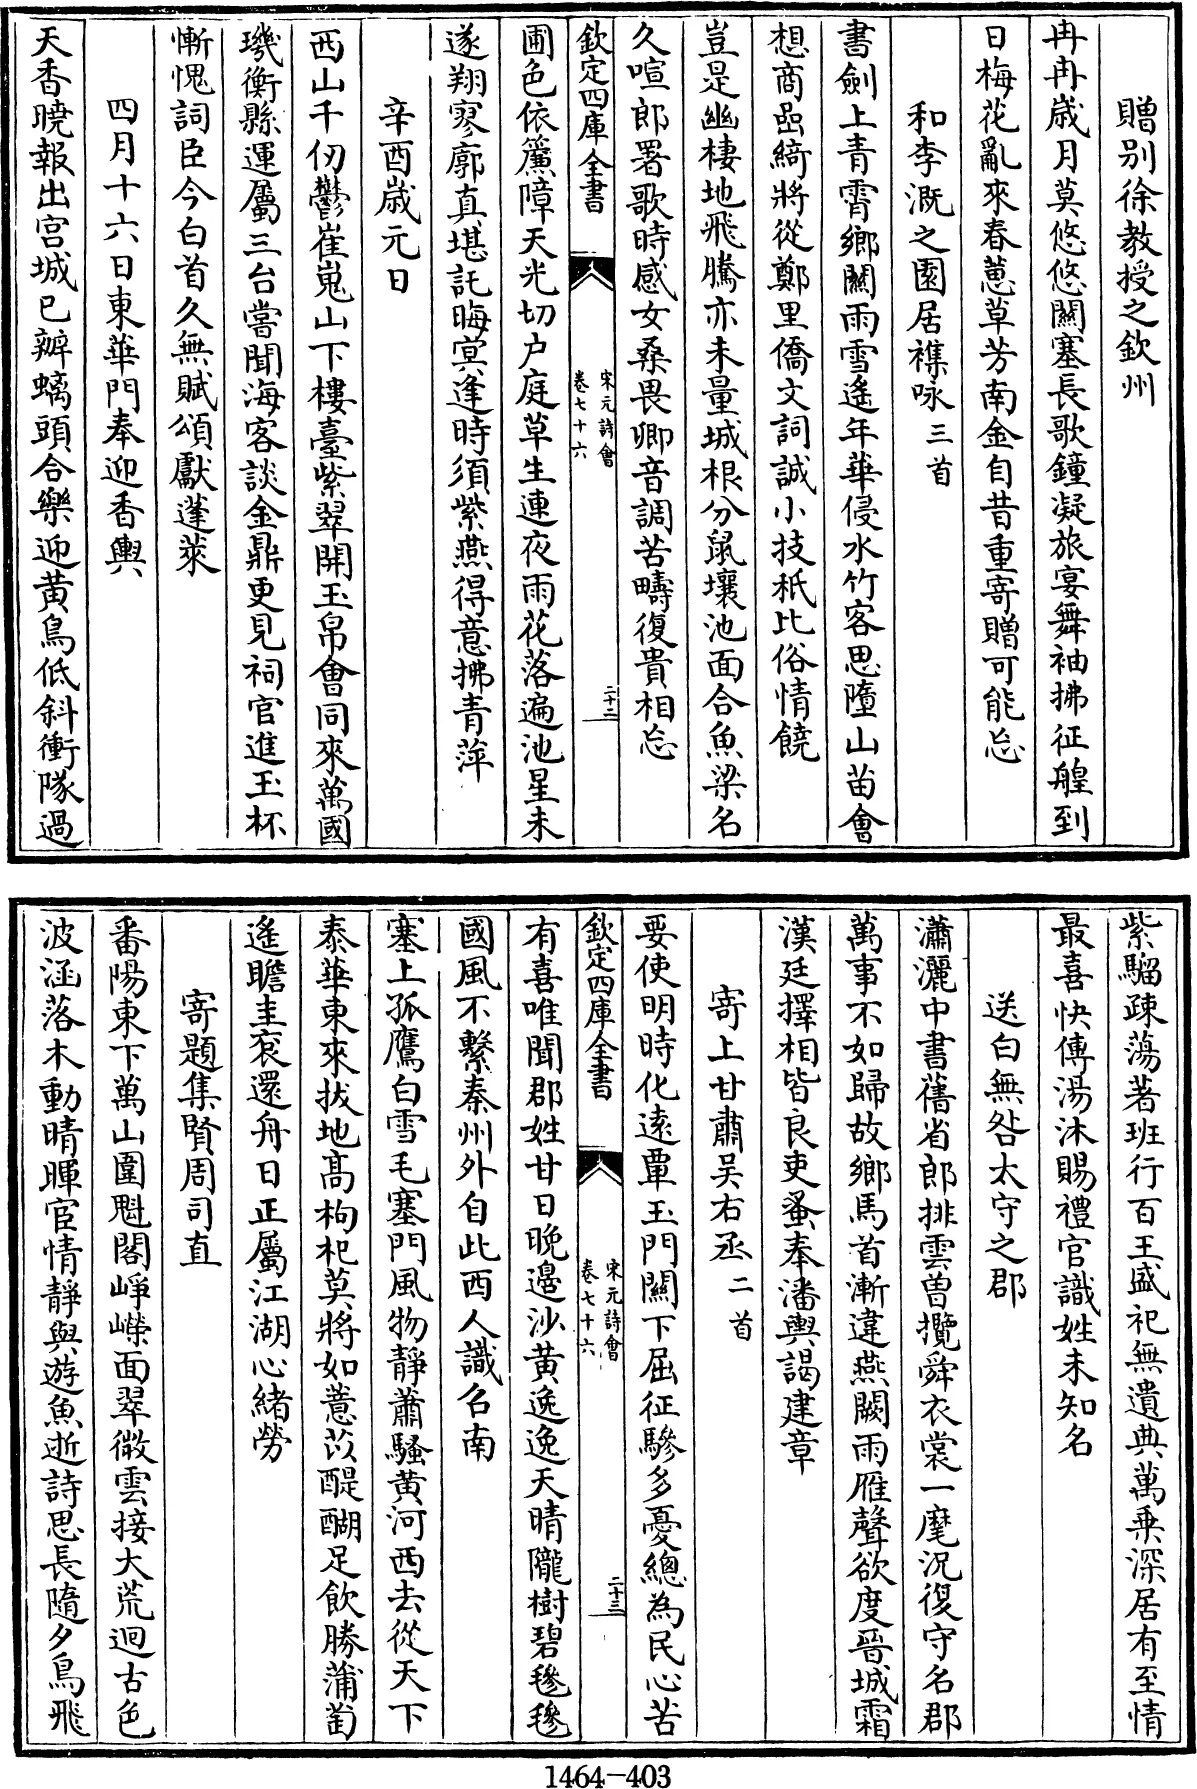 贈别徐教授之欽州
冉冉歳月莫悠悠關塞長歌鐘凝旅宴舞袖拂征艎到
日梅花亂來春蕙草芳南金自昔重寄贈可能忘
和李溉之園居襍咏三首
書劍上青霄鄉關雨雪遙年華侵水竹客思墮山苗會
想商嵓綺將從鄭里僑文詞誠小技秪比俗情饒
豈是幽棲地飛騰亦未量城根分鼠壤池面合魚梁名
久喧郎署歌時感女桑畏卿音調苦疇復貴相忘
欽定四庫全書
宋元詩會
卷七十六
二十二
圃色依簾障天光切户庭草生連夜雨花落遍池星未
遂翔寥廓真堪託晦冥逢時須紫燕得意拂青萍
辛酉歳元日
西山千仞鬱崔嵬山下樓臺紫翠開玉帛會同來萬國
璣衡縣運屬三台嘗聞海客談金鼎更見祠官進玉杯
慚愧詞臣今白首久無賦頌獻蓬萊
四月十六日東華門奉迎香輿
天香曉報出宫城已辦螭頭合樂迎黄鳥低斜衝隊過
紫騮疎蕩著班行百王盛祀無遺典萬乘深居有至情
最喜快傳湯沐賜禮官識姓未知名
送白無咎太守之郡
瀟灑中書舊省郎排雲曾攬舜衣裳一麾況復守名郡
萬事不如歸故鄉馬首漸違燕闕雨雁聲欲度晉城霜
漢廷擇相皆良吏蚤奉潘輿謁建章
寄上甘肅吴右丞二首
要使明時化遠覃玉門關下屈征驂多憂總為民心苦
欽定四庫全書
宋元詩會
卷七十六
二十三
有喜唯聞郡姓甘日晚邊沙黄逸逸天晴隴樹碧毿毿
國風不繫秦州外自此西人識召南
塞上孤鷹白雪毛塞門風物靜蕭騷黄河西去從天下
泰華東來拔地高枸杞莫將如薏苡醍醐足飲勝蒲萄
遙瞻圭衮還舟日正屬江湖心緒勞
寄題集賢周司直
番陽東下萬山圍魁閣崢嶸面翠微雲接大荒迴古色
波涵落木動晴暉宦情靜與游魚逝詩思長隨夕鳥飛
1464-403